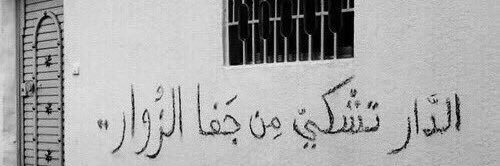 الدَّار تَشْكيّ مِن جَفا الزُوار ..